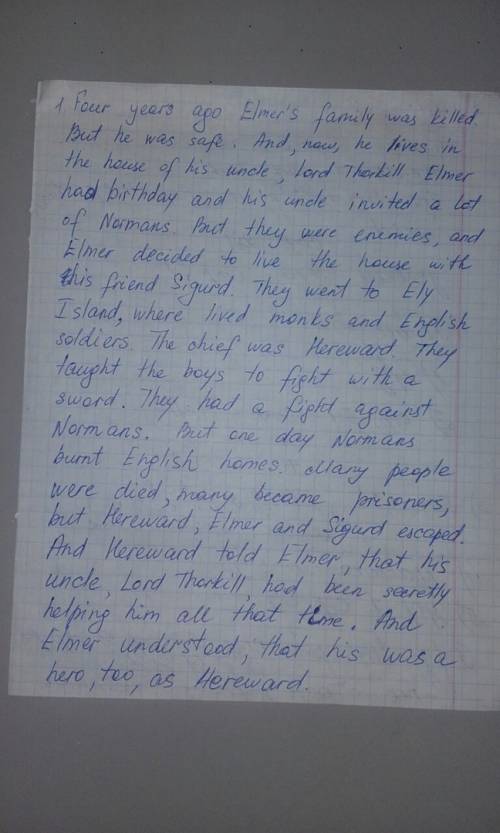 1. Four years ago Elmer's family was killed.
But he was safe. And, now, he lives in
the house of his uncle, Lord Thorkill. Elmer
had birthday and his uncle invited a lot
of Normans. But they were enemies, and
Elmer decided to live the house with
his friend Sigurd. They went to Ely
Island, where lived monks and English
soldiers. The chief was Hereward. They
taught the boys to fight with a
sword. They had a fight against
Normans. But one day Normans
burnt English homes. Many people
were died, many became prisoners,
but Hereward, Elmer and Sigurd escaped.
And Hereward told Elmer, that his
uncle, Lord Thorkill, had been secretly
helping him all that time. And
Elmer understood, that his was a
hero, too, as Hereward.